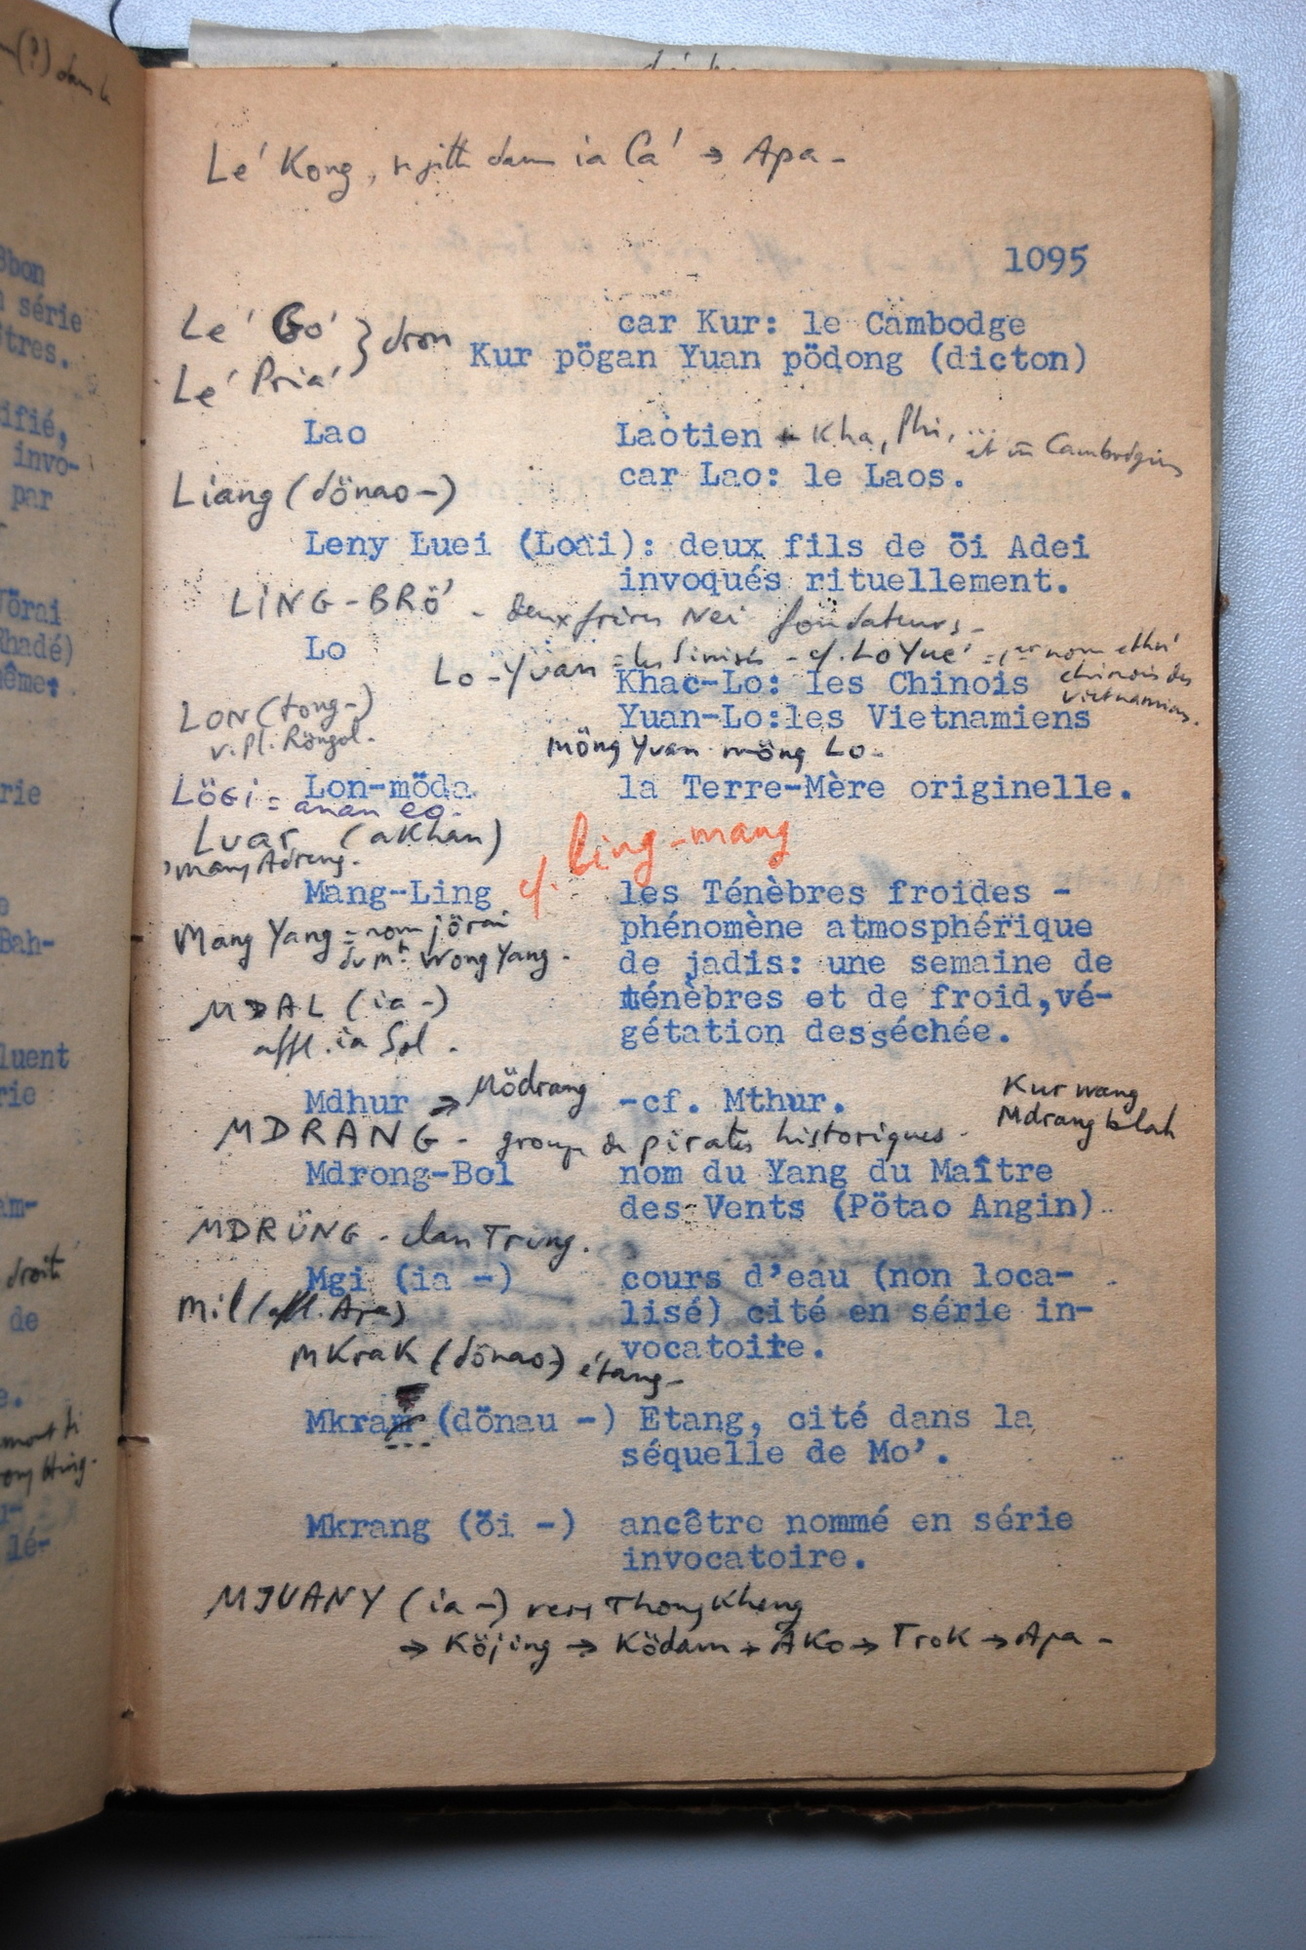 Le' Kong, dans ia Ca' → Apa -
1095
Le' Go' } dron
car Kur: le Cambodge
Kur pögan Yuan pödong (dicton)
Le' Pria'
Lao Laotien + Kha, Phi, ... et Cambodgiens
car Lao: le Laos.
Liang (dönao -)
Leny Luei (Loai): deux fils de öi Adei
invoqués rituellement.
LING-BRÖ' - deux frères Nei fondateurs -
Lo
Lo-Yuan = les Sinisés - cf. Lo Yue' = 1er nom ethn.
chinois des
vietnamiens.
Khac-Lo: les Chinois
LON (tong-)
v. pl. Röngol.
Yuan-Lo: les Vietnamiens
möng Yuan möng Lo -
Lögi = anan eg.
Lon-möda la Terre-Mère originelle.
Luar (akhan)
'mang Adreng.
cf. ling-mang
Mang-Ling les Ténèbres froides -
phénomène atmosphérique
Mang Yang = nom jörai
du mt. Wong Yang.
de jadis: une semaine de
MDAL (ia -)
affl. ia Sol.
ténèbres et de froid,vé-
gétation desséchée.
Mdhur → Mödrang -cf. Mthur.
Kur wang
Mdrang blah
MDRANG - groupe de pirates historiques -
Mdrong-Bol nom du Yang du Maître
des Vents (Pötao Angin)
MDRÜNG - clan Tring.
Mgi (ia -) cours d'eau (non loca-
Mil (affl. Apa)
lisé) cité en série in-
vocatoire.
MKraK (dönao -) étang -
Mkram (dönau -) Etang, cité dans la
séquelle de Mo'.
Mkrang (öi -) ancêtre nommé en série
invocatoire.
MJUANY (ia -) vers Thong Kheng
→ Köjing → Ködam → AKo → TroK → Apa -
Bbon
série
tres.
ifié,
invo-
par
Jörai
Rhadé)
même.
rie
Bah-
luent
rie
am-
droite
de
lé-